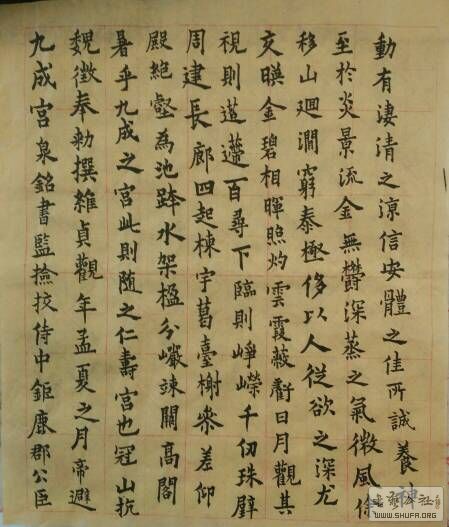 九成宮泉銘書監撿挍侍中鉅鹿郡公臣
魏徵奉勅撰維貞觀年孟夏之月帝避
暑乎九成之宮此則隨之仁壽宮也冠山抗
殿絕壑為池跨水架楹分巖竦闕高閣
周建長廊四起棟宇葛臺榭參差仰
視則迢遰百尋下臨則崢嶸千仞珠璧
交暎金碧相暉照灼雲霞蔽虧日月觀其
移山迴澗窮泰極侈以人從欲之深尤
至於炎景流金無欝深蒸之氣微風徐
動有凄清之涼信安體之佳所誠養神
WWW.SHUFA.ORG